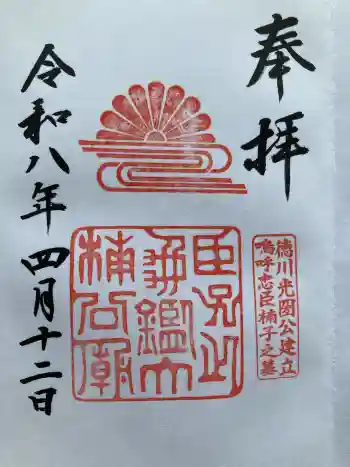 奉拝
徳川光圀公建立
嗚呼忠臣楠子之墓
楠公廟
令和八年四月十二日